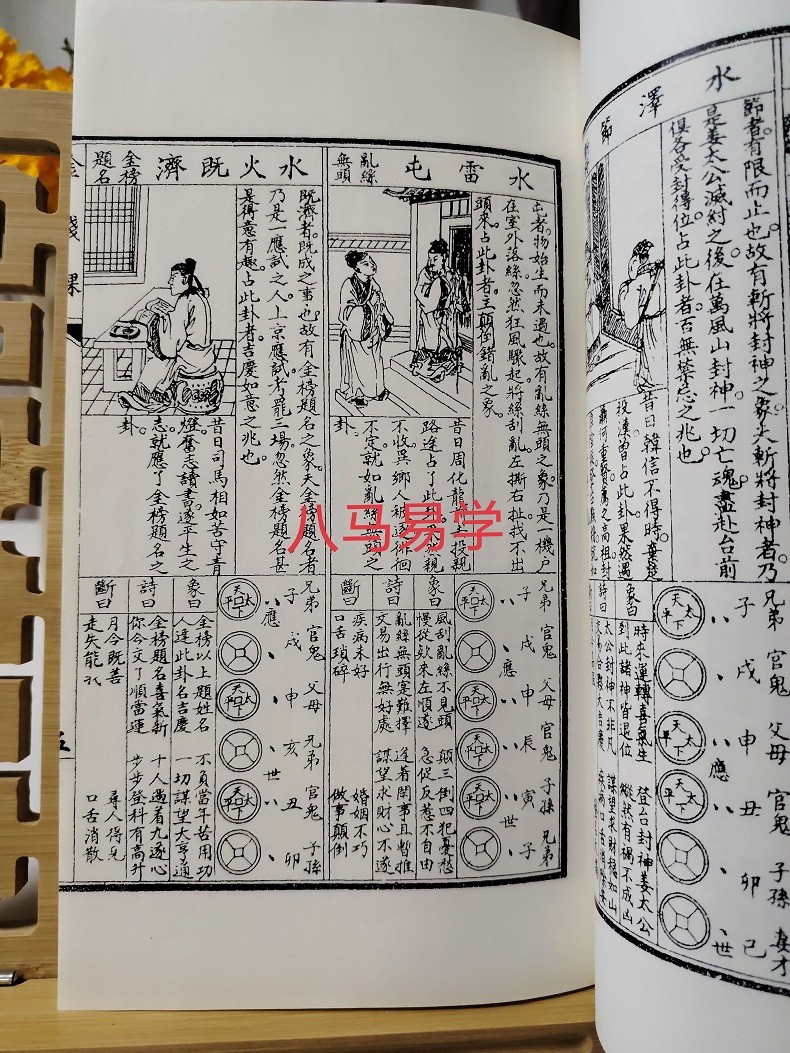 水澤節
節者。有限而止也。故有斬將封神之象。夫斬將封神者。乃
是姜太公滅紂之後。在萬風山封神。一切亡魂。盡赴台前
俱各受封得位。占此卦者。百無禁忌之兆也。
昔日韓信不得時。棄楚
投漢曾占此卦。果然遇
蕭何重賢薦之高祖封
兄弟 官鬼 父母 官鬼 子孫 妻才
子 戌 申 丑 卯 巳
應 世
天下太平
天下太平
天下太平
象曰
時來運轉喜氣生 登台封神姜太公
到此諸神皆退位 縱然有禍不成凶
詩曰
太公封神不非凡 謀望求財穩如山
水雷屯
亂絲無頭
屯者。物始生而未通也。故有亂絲無頭之象。乃是一機戶
在室外落絲。忽然狂風驟起。將絲刮亂。左撕右扯。找不出
頭來。占此卦者。主顛倒錯亂之象。
昔日周化龍 投親
路途占了此卦 然親
不收。異鄉人秘迷徘徊
不定。就如亂絲無頭之
卦。
兄弟 官鬼 父母 官鬼 子孫 兄弟
子 戌 申 辰 寅 子
應 世
天下太平
天下太平
天下太平
象曰
風刮亂絲不見頭 顛三倒四犯憂愁
慢從款來左順遂 急促反惹不自由
詩曰
亂絲無頭寔難擇 逢着閒事且暫推
交易出行無好處 謀望求財心不遂
斷曰
疾病未好 婚姻不巧
口舌瑣碎 做事顛倒
水火既濟
金榜題名
既濟者。既成之事也。故有金榜題名之象。夫金榜題名者
乃是一應試之人。上京應試。考罷三場。忽然金榜題名。甚
是得意有趣。占此卦者。吉慶如意之兆也。
昔日司馬相如苦守青
燈。奮志讀書。遂平生之
志。就應了金榜題名之
卦。
兄弟 官鬼 父母 兄弟 官鬼 子孫
子 戌 申 亥 丑 卯
應 世
天下太平
天下太平
天下太平
象曰
金榜以上題姓名 不負當年苦用功
人逢此卦名吉慶 一切謀望大亨通
詩曰
金榜題名喜氣新 十人遇着九遂心
你今交了順當運 步步登科有高升
斷曰
月令既善 尋人得見
走失能找 口舌消散
金錢課
八马易学